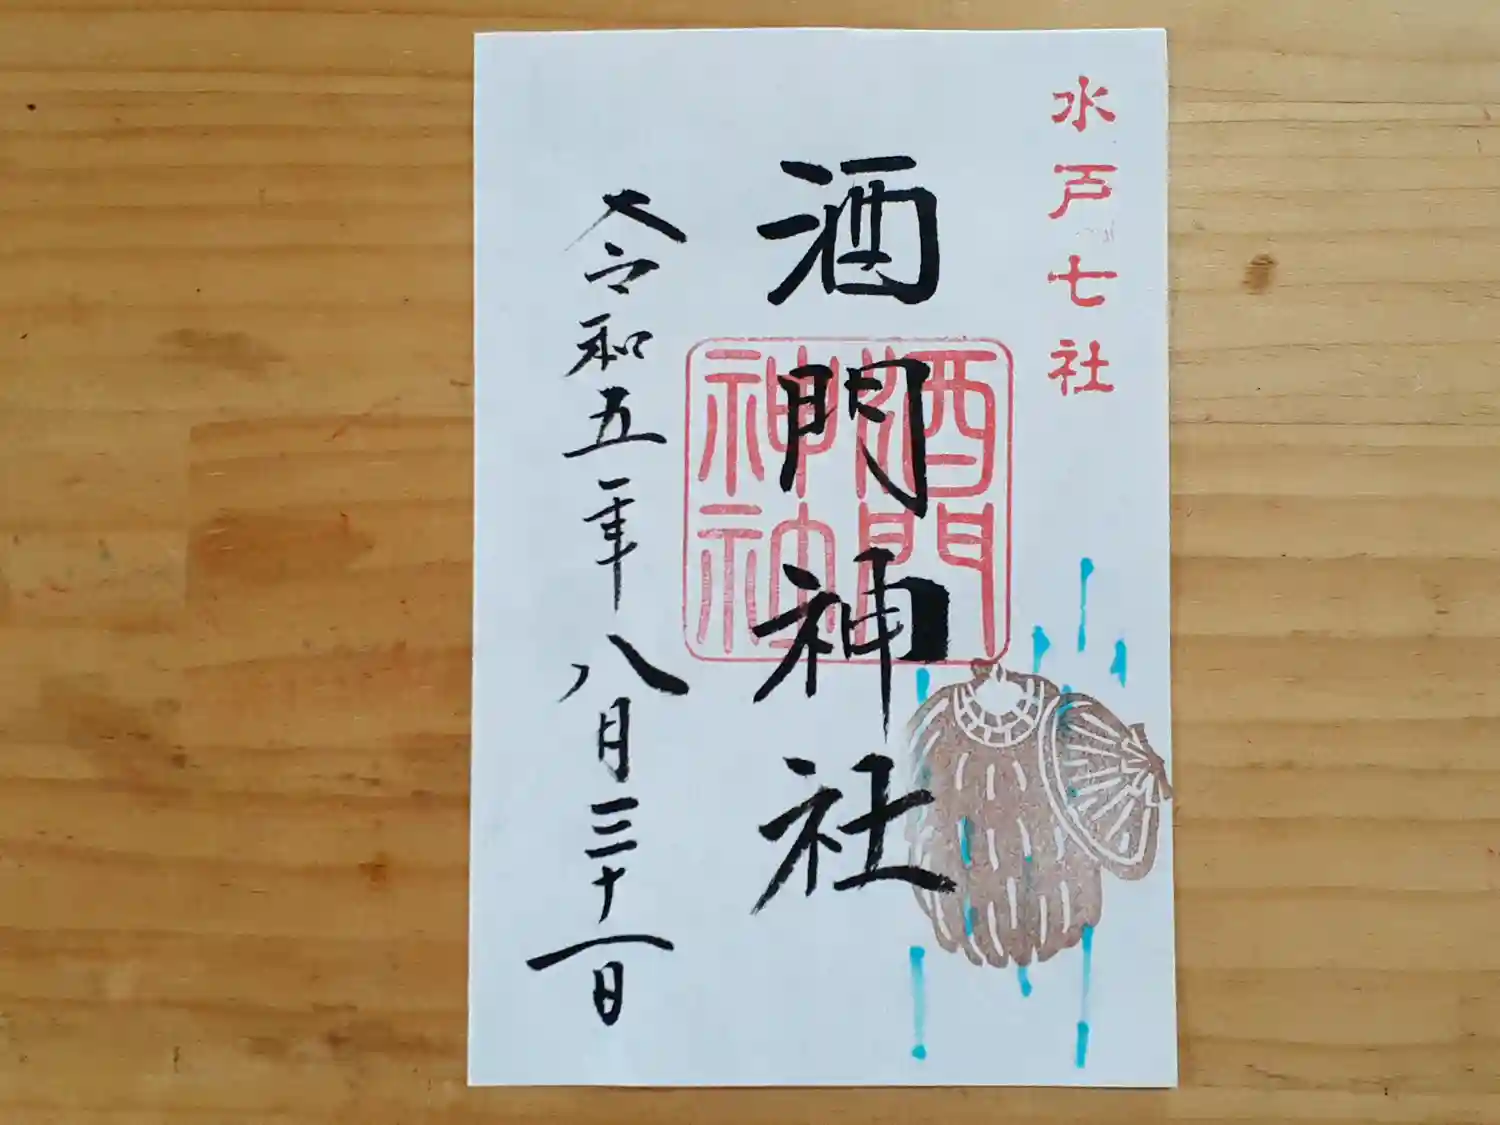 水戸七社
酒門神社
酒門
神社
令和五年八月三十一日